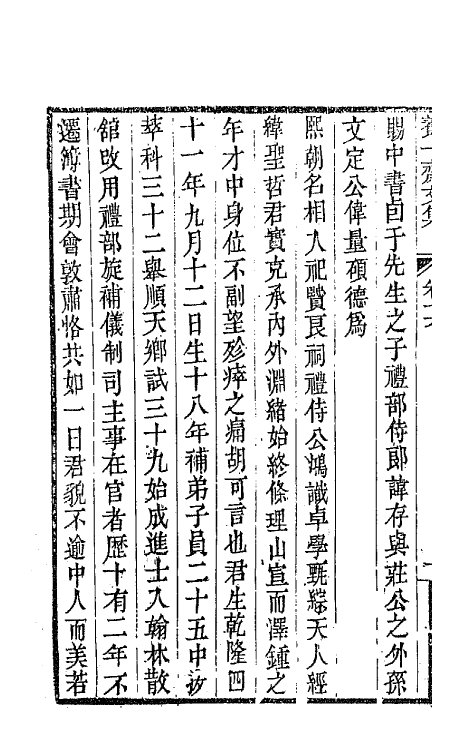 養一齋文集　卷十六
賜中書卣于先生之子禮部侍郎諱存與莊公之外孫
文定公偉量碩德爲
熙朝名相入祀賢良祠禮侍公鴻識卓學甄綜天人經
緯聖哲君實克承內外淵緒始終條理山宣而澤鍾之
年才中身位不副望殄瘁之痛胡可言也君生乾隆四
十一年九月十二日生十八年補弟子員二十五中拔
萃科三十二舉順天鄉試三十九始成進士入翰林散
舘改用禮部旋補儀制司主事在官者歷十有二年不
遷簿書期會敦肅恪共如一日君貌不逾中人而美若